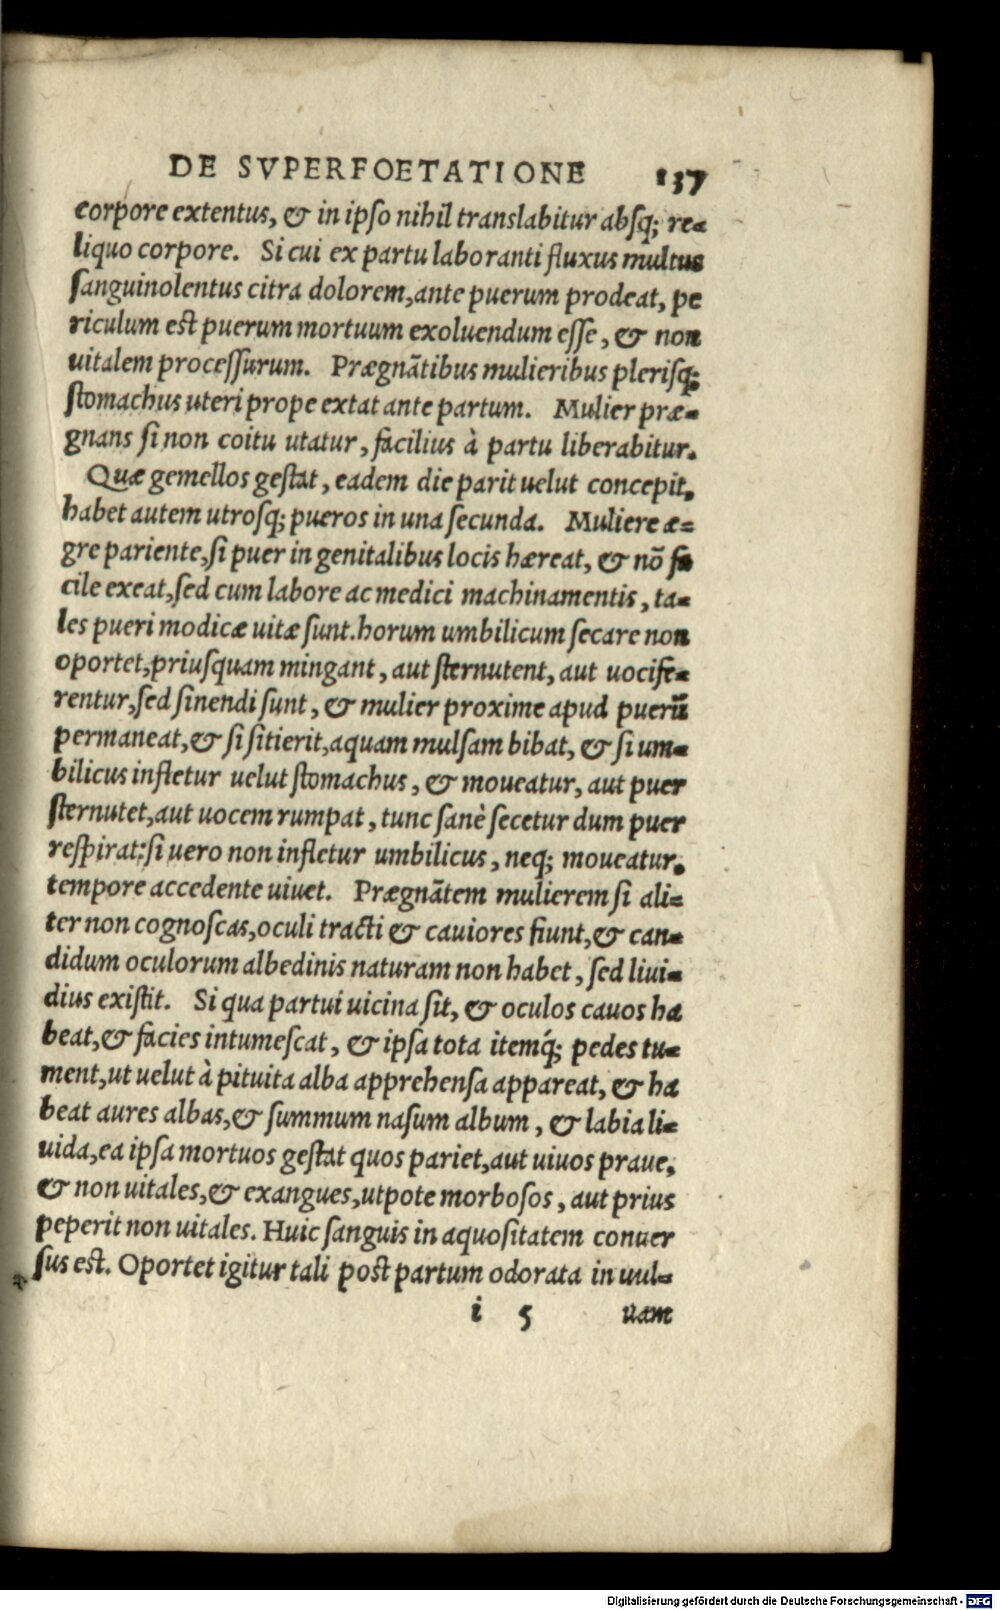 DE SVPERFOETATIONE 137
corpore extentus, & in ipſo nihil translabitur abſq; re-
liquo corpore. Si cui ex partu laboranti fluxus multus
ſanguinolentus citra dolorem, ante puerum prodeat, pe
riculum est puerum mortuum exoluendum eſſe, & non
uitalem proceſſurum. Prægnãtibus mulieribus pleriſq;
ſtomachus uteri prope extat ante partum. Mulier præ-
gnans ſi non coitu utatur, facilius à partu liberabitur.
Quæ gemellos geſtat, eadem die parit uelut concepit,
habet autem utroſq; pueros in una ſecunda. Muliere æ-
gre pariente, ſi puer in genitalibus locis hæreat, & nõ fa
cile exeat, ſed cum labore ac medici machinamentis, ta-
les pueri modicæ uitæ ſunt. horum umbilicum ſecare non
oportet, priuſquam mingant, aut ſternutent, aut uocife-
rentur, ſed ſinendi ſunt, & mulier proxime apud puerũ
permaneat, & ſi ſitierit, aquam mulſam bibat, & ſi um-
bilicus infletur uelut ſtomachus, & moueatur, aut puer
ſternutet, aut uocem rumpat, tunc ſanè ſecetur dum puer
reſpirat: ſi uero non infletur umbilicus, neq; moueatur,
tempore accedente uiuet. Prægnãtem mulierem ſi ali-
ter non cognoſcas, oculi tracti & cauiores fiunt, & can-
didum oculorum albedinis naturam non habet, ſed liui-
dius exiſtit. Si qua partui uicina ſit, & oculos cauos ha
beat, & facies intumeſcat, & ipſa tota itemq́; pedes tu-
ment, ut uelut à pituita alba apprehenſa appareat, & ha
beat aures albas, & ſummum naſum album, & labia li-
uida, ea ipſa mortuos geſtat quos pariet, aut uiuos praue,
& non uitales, & exangues, utpote morboſos, aut prius
peperit non uitales. Huic ſanguis in aquoſitatem conuer
ſus eſt. Oportet igitur tali poſt partum odorata in uul-
i 5 uam
Digitalisierung gefördert durch die Deutsche Forschungsgemeinschaft - DFG